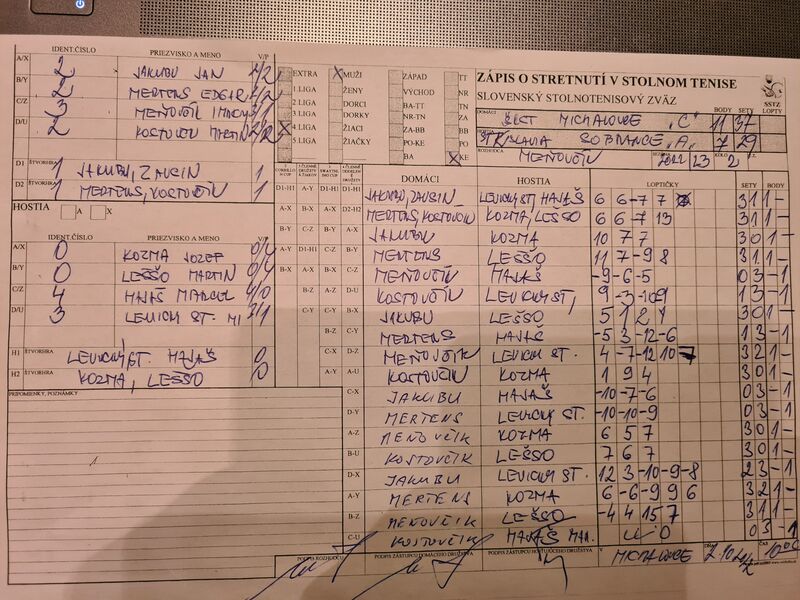 IDENT.ČÍSLO PRIEZVISKO A MENO V/P
A/X 2 JAKUBU JAN 2/2
B/Y 2 MERTENS EDGAR 2/2
C/Z 3 MEŇOVČÍK
D/U 2 KOSTOVČÍK MARTIN 2/2
D1 ŠTVORHRA 1 JAKUBU, ZAUSIN 1
D2 ŠTVORHRA 1 MERTENS, KOSTOVČÍK 1
HOSTIA A X
IDENT.ČÍSLO PRIEZVISKO A MENO V/P
A/X 0 KOZMA JOZEF 0/4
B/Y 0 LEŠŠO MARTIN 0/4
C/Z 4 HAJAŠ MARCEL 4/0
D/U 3 LEVICKÝ ST. MI 3/1
H1 ŠTVORHRA LEVICKÝ ST. HAJAŠ 0
H2 ŠTVORHRA KOZMA, LEŠŠO 0
PRIPOMIENKY, POZNÁMKY
EXTRA X MUŽI ZÁPAD TT
1.LIGA ŽENY VÝCHOD NR
2.LIGA DORCI BA-TT TN
3.LIGA DORKY NR-TN ZA
X 4.LIGA ŽIACI ZA-BB BB
5.LIGA ŽIAČKY PO-KE PO
BA X KE
ZÁPIS O STRETNUTÍ V STOLNOM TENISE
SLOVENSKÝ STOLNOTENISOVÝ ZVÄZ
SSTZ
BODY SETY LOPTY
DOMÁCI ŠKST MICHALOVCE „C" 11 37
STRISLAVIA SOBRANCE „A" 7 29
ROZHODCA MEŇOVČÍK 2022/23 KOLO 2
DOMÁCI HOSTIA LOPTIČKY SETY BODY
D1-H1 JAKUBU, ZAUSIN LEVICKÝ ST, HAJAŠ 6 6 -7 7 3 1 1 -
D2-H2 MERTENS, KOSTOVČÍK KOZMA, LEŠŠO 6 6 -7 13 3 1 1 -
A-X JAKUBU KOZMA 10 7 7 3 0 1 -
B-Y MERTENS LEŠŠO 11 7 -9 8 3 1 1 -
C-Z MEŇOVČÍK HAJAŠ -9 -6 -5 0 3 - 1
D-U KOSTOVČÍK LEVICKÝ ST, 9 -3 -10 -9 1 3 - 1
A-Y JAKUBU LEŠŠO 5 1 2 3 0 1 -
B-Z MERTENS HAJAŠ -5 3 -12 -6 1 3 - 1
C-U MEŇOVČÍK LEVICKÝ ST. 4 -7 -12 10 7 3 2 1 -
D-X KOSTOVČÍK KOZMA 1 9 4 3 0 1 -
JAKUBU HAJAŠ -10 -7 -6 0 3 - 1
D-Y MERTENS LEVICKÝ ST. -10 -10 -9 0 3 - 1
MEŇOVČÍK KOZMA 6 5 7 3 0 1 -
KOSTOVČÍK LEŠŠO 7 6 7 3 0 1 -
JAKUBU LEVICKÝ ST. 12 3 -10 -9 -8 2 3 - 1
MERTENS KOZMA 6 -6 -9 9 6 3 2 1 -
MEŇOVČÍK LEŠŠO -4 4 15 7 3 1 1 -
KOSTOVČÍK HAJAŠ W O 0 3 - 1
PODPIS ROZHODCU PODPIS ZÁSTUPCU DOMÁCEHO DRUŽSTVA PODPIS ZÁSTUPCU HOSŤUJÚCEHO DRUŽSTVA
V MICHALOVCE DŇA 2.10 ČAS 10